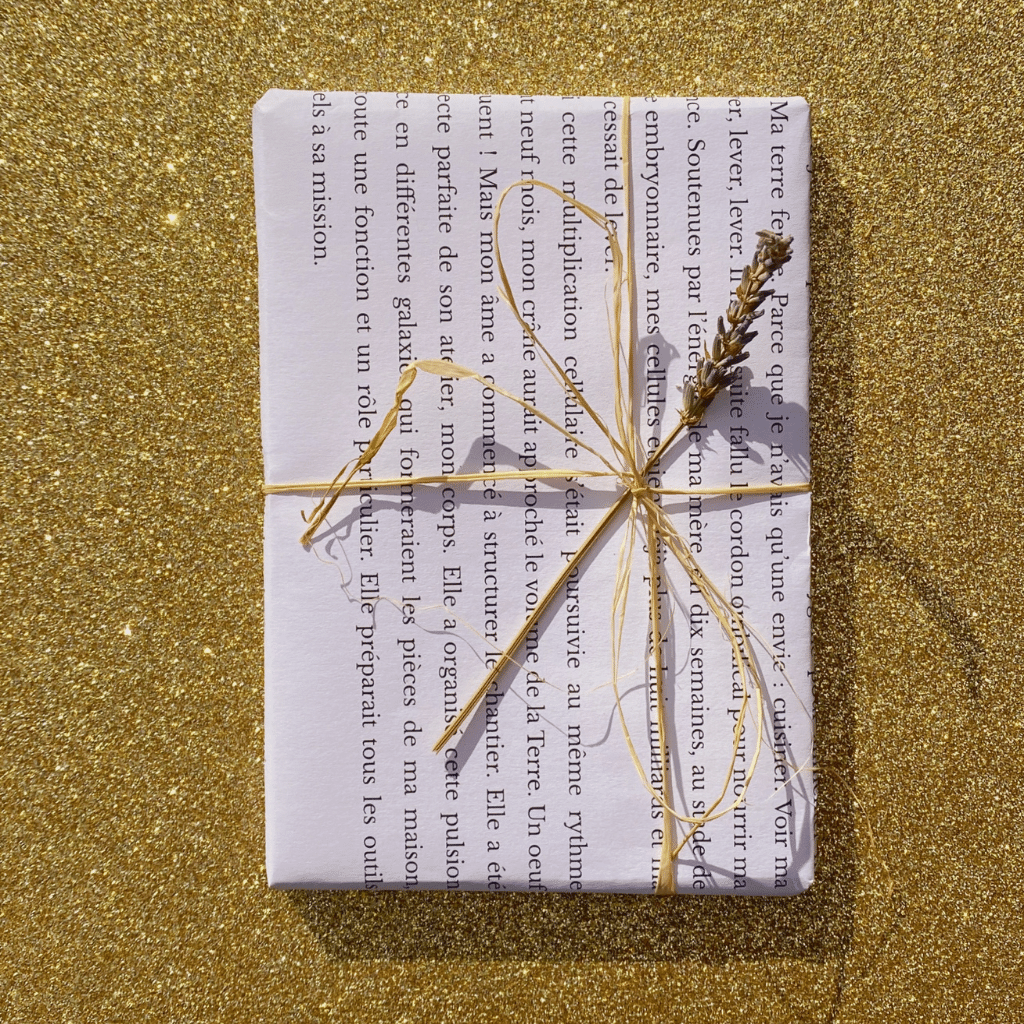 Ma terre Parce que je n'avais qu'une envie : cuisiner. Voir ma
er, lever, lever. fallu le cordon ombilical pour nourrir ma
ce. Soutenues par l'énergie de ma mère dix semaines, au stade de
e embryonnaire, mes cellules déjà plus de huit milliards et
cessait de lever.
i cette multiplication cellulaire s'était poursuivie au même rythme
t neuf mois, mon crâne aurait approché le volume de la Terre. Un oeuf
uent ! Mais mon âme a commencé à structurer le chantier. Elle a été
ecte parfaite de son atelier, mon corps. Elle a organisé cette pulsion
ce en différentes galaxies qui formeraient les pièces de ma maison,
oute une fonction et un rôle particulier. Elle préparait tous les outils
els à sa mission.